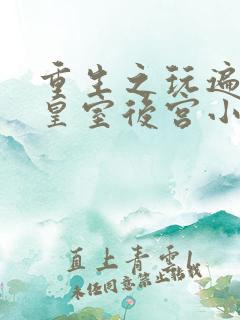 重生之玩遍
皇室後宫小
直上青雲1
未经同意禁止转载